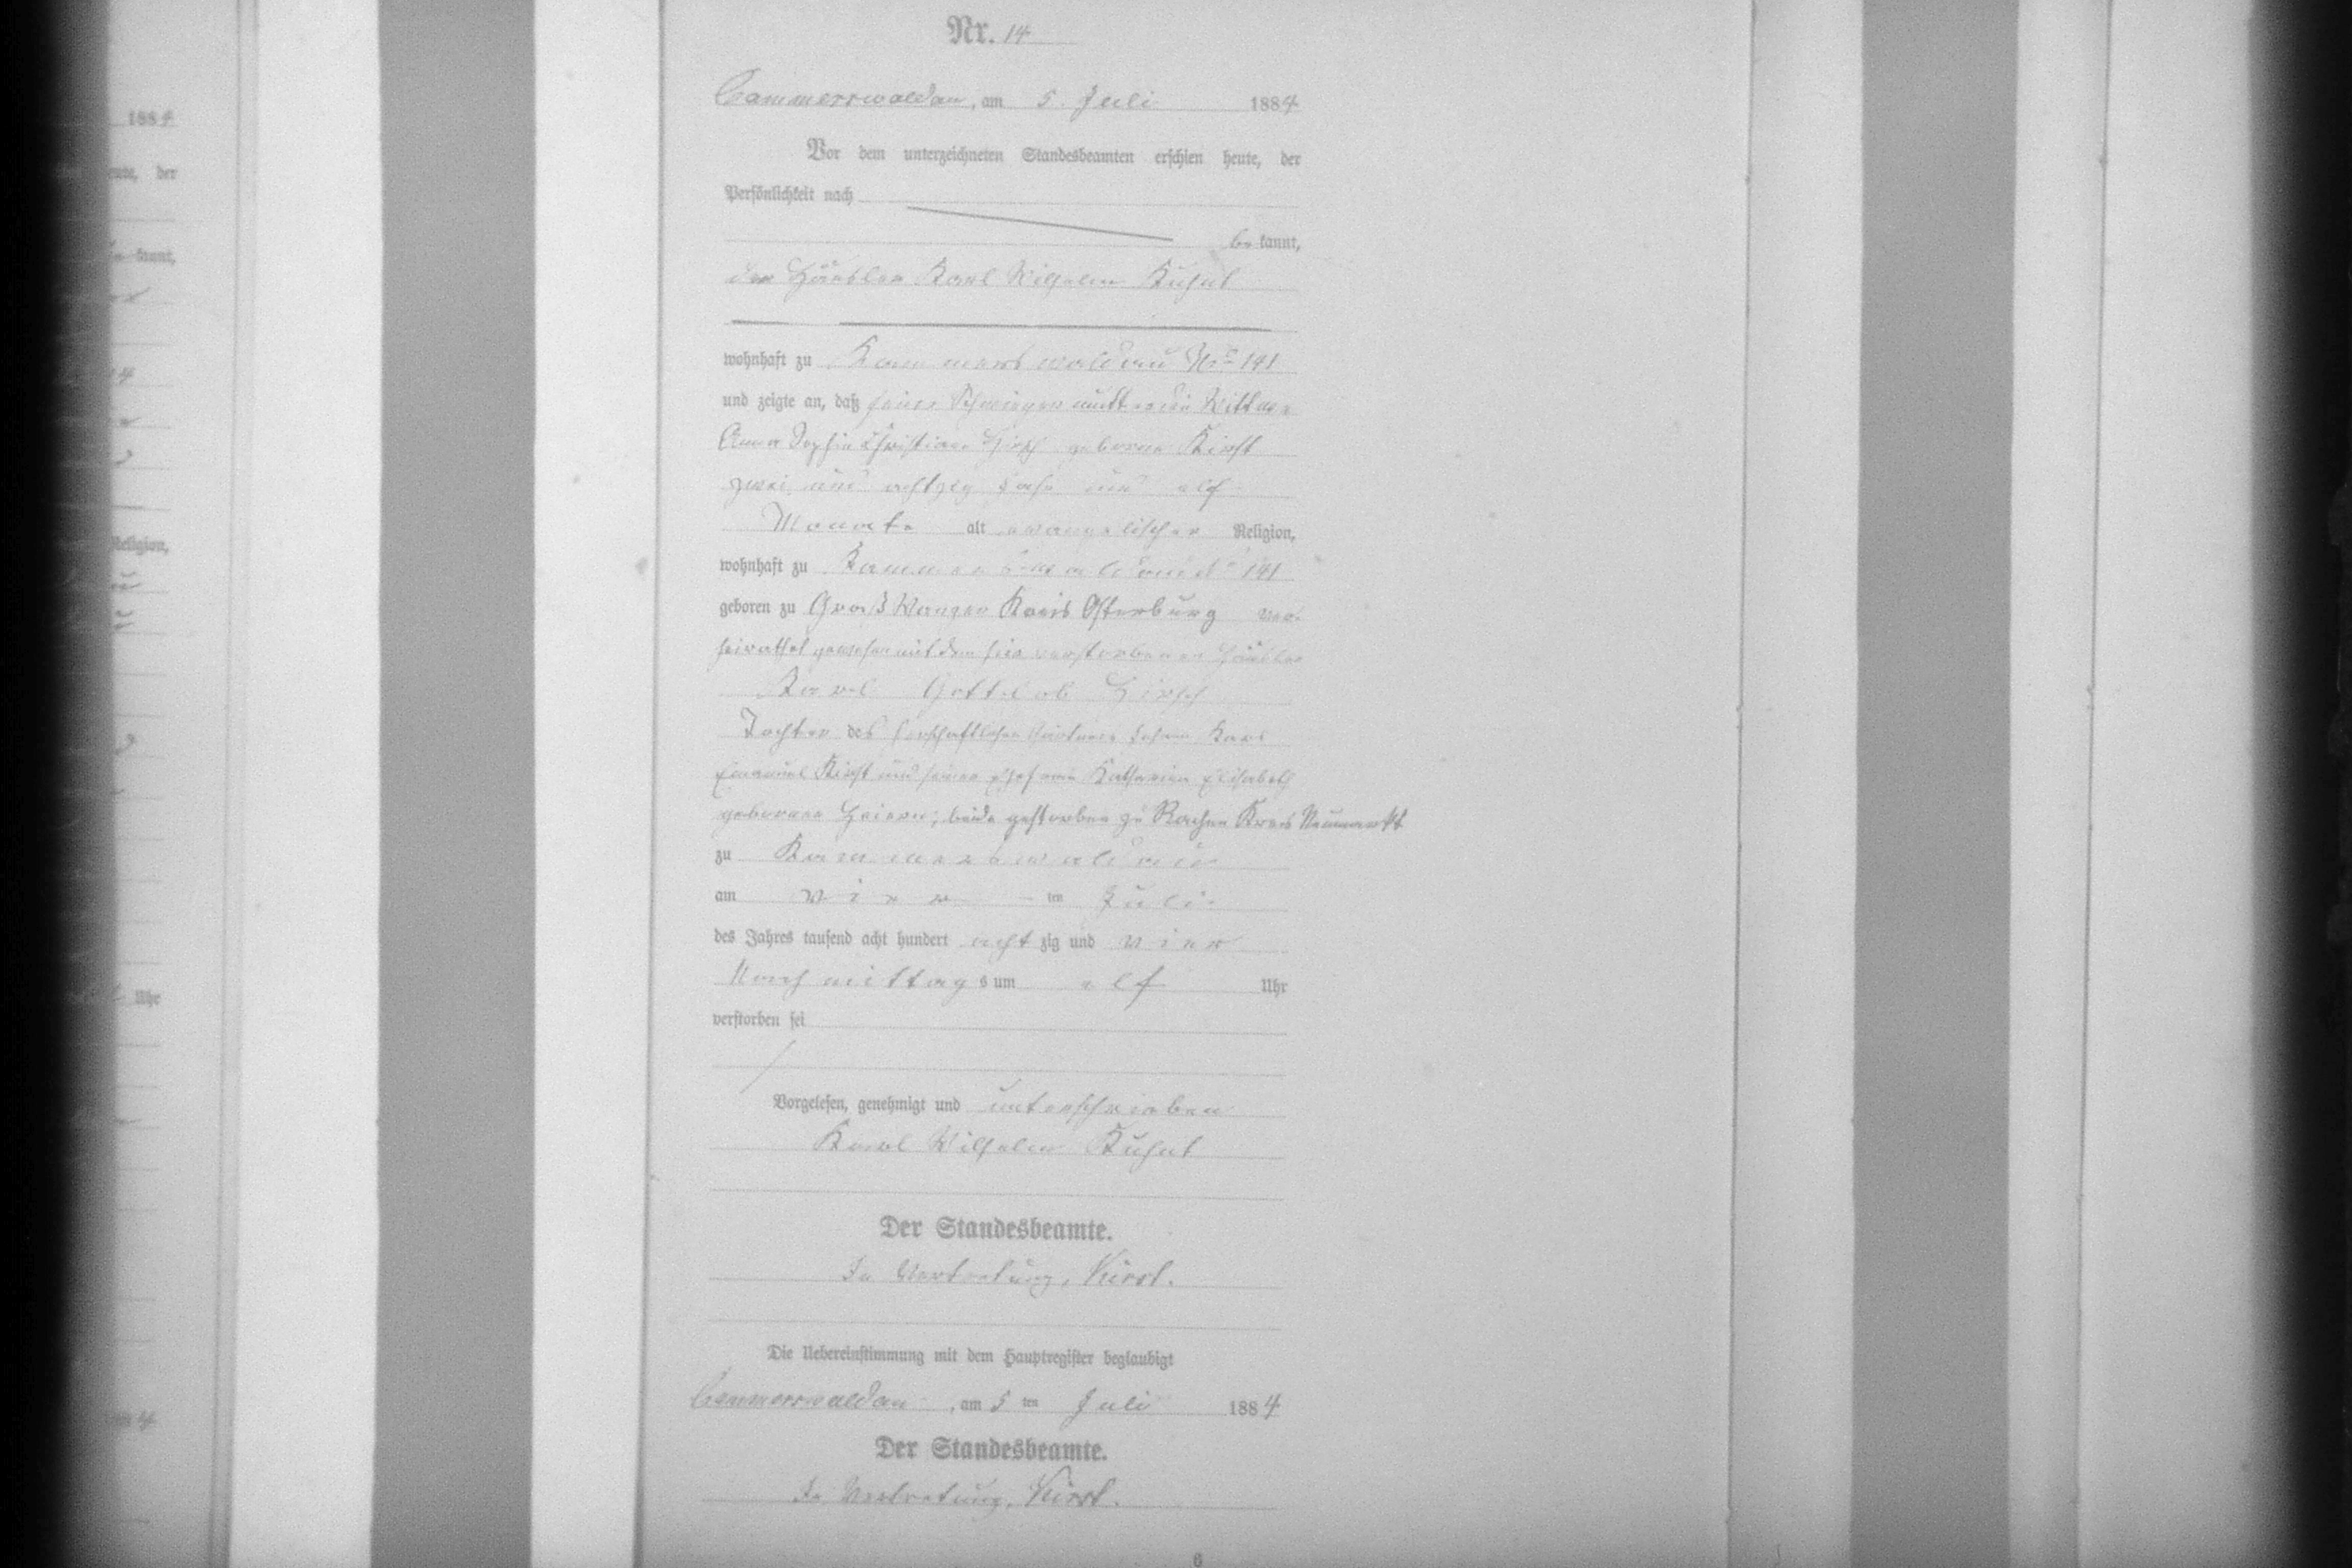 Nr. 14
Cammerswaldau, am 5. Juli 1884
Vor dem unterzeichneten Standesbeamten erschien heute, der
Persönlichkeit nach
be kannt,
der Häusler Karl Wilhelm Kuhnt
wohnhaft zu Kammerswaldau No 141
und zeigte an, daß seine Schwiegermutter die Wittwe
Anna Sophie Christiane Hirsch geborne Kirst
zwei und achtzig Jahr und elf
Monate alt evangelischer Religion,
wohnhaft zu Kammerswaldau No 141
geboren zu Groß Wanger Kreis Osterburg ver-
heirathet gewesen mit dem hier verstorbenen Häusler
Karl Gottlob Hirsch
Tochter des herschaftlichen Gärtners Johann Karl
Emanuel Kirst und seiner Ehefrau Katharina Elisabeth
geborene; beide gestorben zu Kreis Neumarkt
zu Kammerswaldau
am vier ten Juli
des Jahres tausend acht hundert acht zig und vier
Nachmittag s um elf Uhr
verstorben sei
Vorgelesen, genehmigt und unterschrieben
Karl Wilhelm Kuhnt
Der Standesbeamte.
In Vertretung, Kirst.
Die Uebereinstimmung mit dem Hauptregister beglaubigt
Cammerswaldau, am 5 ten Juli 1884
Der Standesbeamte.
In Vertretung, Kirst.
6
188
eute, der
kannt,
Religion,
Uhr